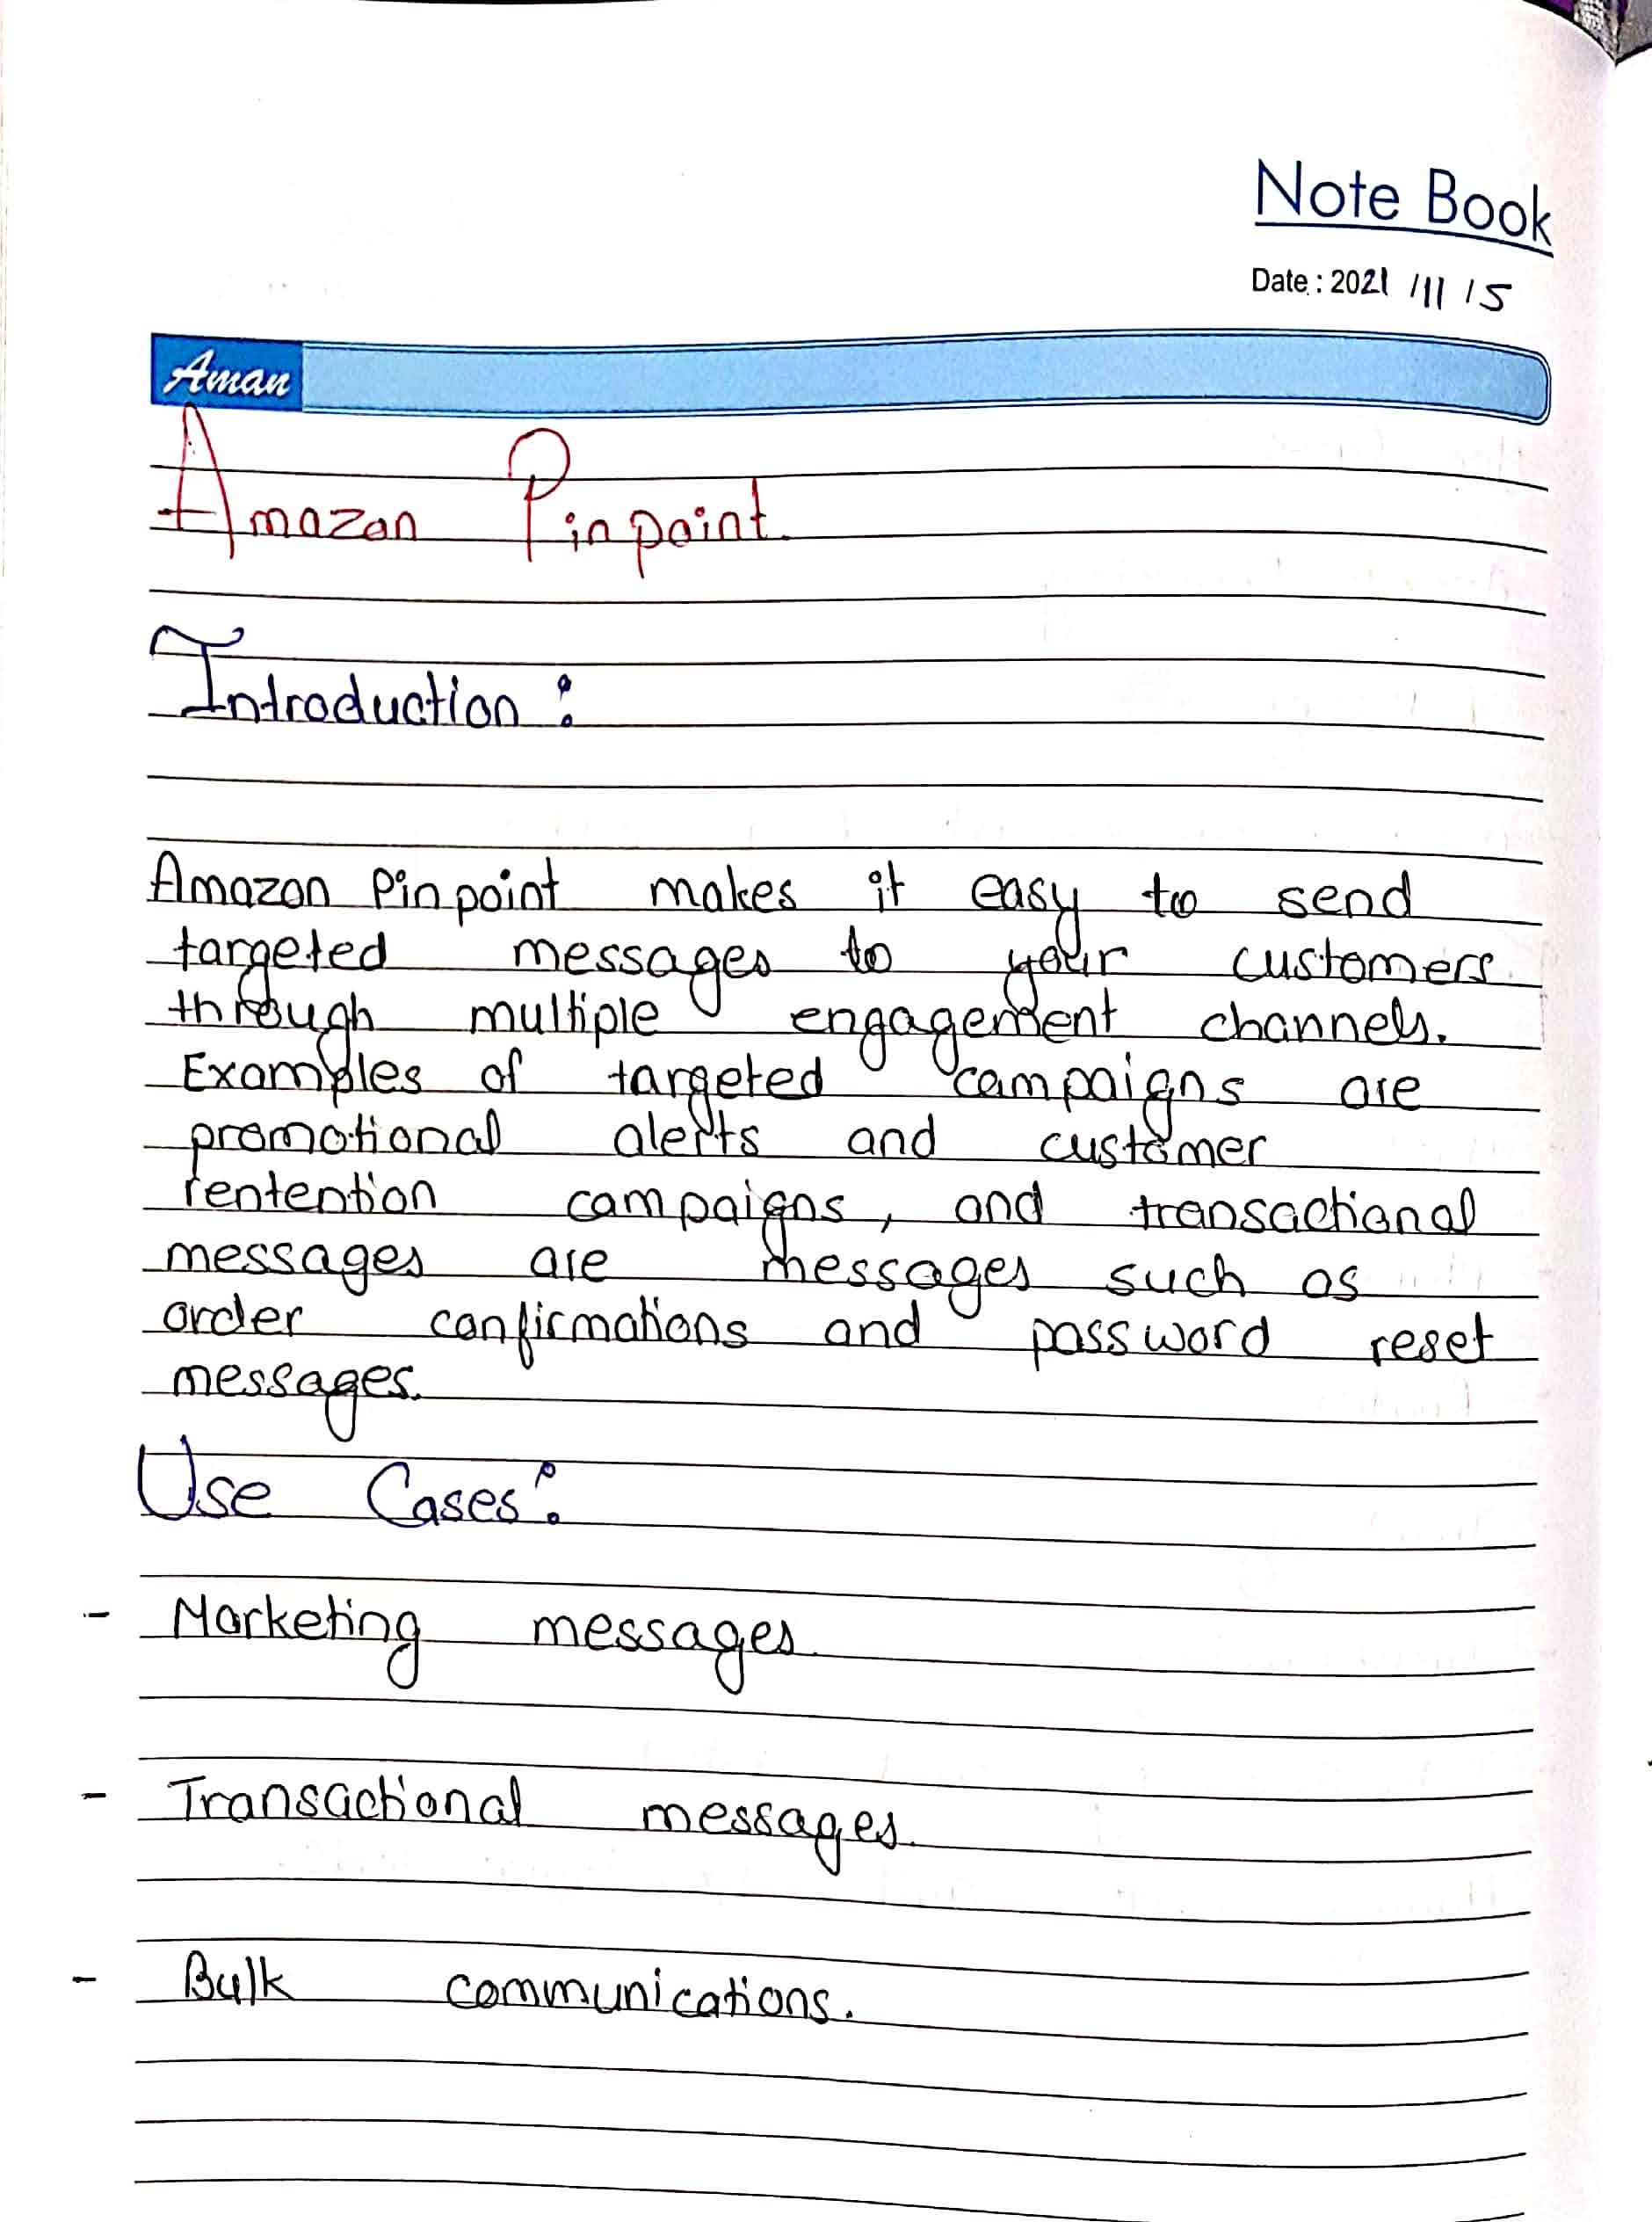 Note Book
Date : 2021 /11 /5
Aman
Amazon Pinpoint.
Introduction :
Amazon Pinpoint makes it easy to send
targeted messages to your customers
through multiple engagement channels.
Examples of targeted campaigns are
promotional alerts and customer
rentention campaigns, and transactional
messages are messages such as
order confirmations and password reset
messages.
Use Cases :
- Marketing messages.
- Transactional messages.
- Bulk communications.